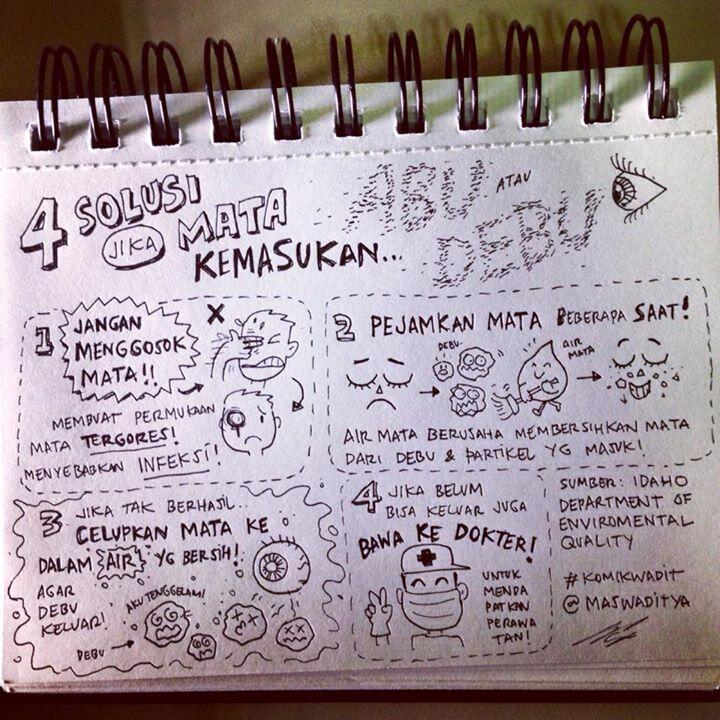 4 SOLUSI
JIKA MATA
KEMASUKAN...
ABU ATAU
DEBU
1 JANGAN
MENGGOSOK
MATA!!
X
MEMBUAT PERMUKAAN
MATA TERGORES!
MENYEBABKAN INFEKSI!
2 PEJAMKAN MATA BEBERAPA SAAT!
DEBU
AIR
MATA
AIR MATA BERUSAHA MEMBERSIHKAN MATA
DARI DEBU & PARTIKEL YG MASUK!
3 JIKA TAK BERHASIL..
CELUPKAN MATA KE
DALAM AIR YG BERSIH!
AGAR
DEBU
KELUAR!
AKU TENGGELAM!
DEBU
4 JIKA BELUM
BISA KELUAR JUGA
BAWA KE DOKTER!
UNTUK
MENDA
PATKAN
PERAWA
TAN!
SUMBER: IDAHO
DEPARTMENT OF
ENVIROMENTAL
QUALITY
#KOMIKWADIT
@MASWADITYA